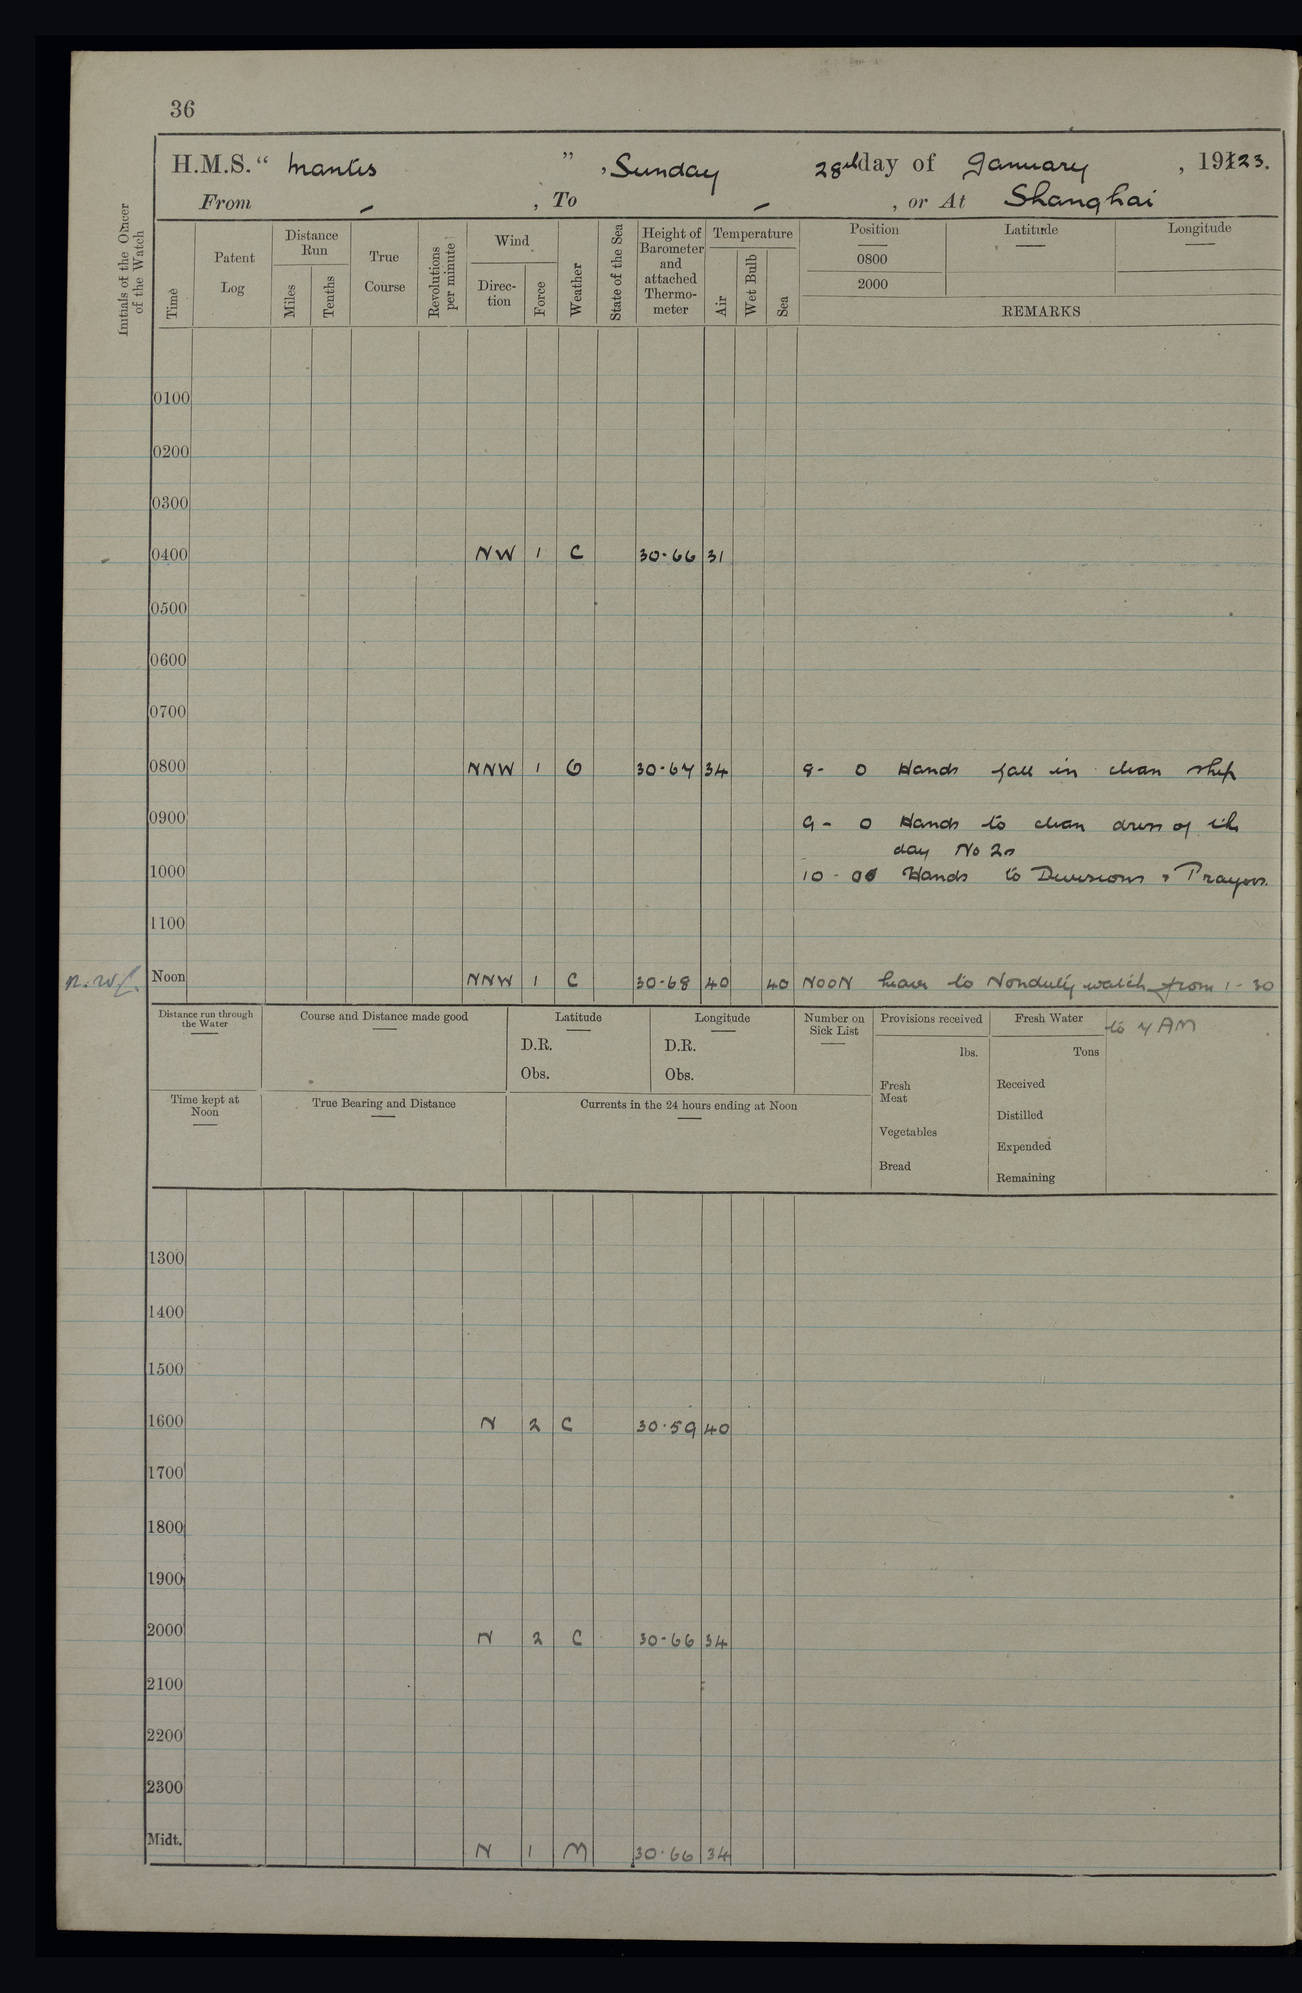 36
H.M.S. "Mantis", Sunday 28th day of January, 1923.
From - , To - , or At Shanghai
Initials of the Officer of the Watch
Time
Patent Log
Distance Run
Miles
Tenths
True Course
Revolutions per minute
Wind
Direction
Force
Weather
State of the Sea
Height of Barometer and attached Thermometer
Temperature
Air
Wet Bulb
Sea
Position
0800
2000
Latitude
Longitude
REMARKS
0100
0200
0300
0400 NW 1 C 30·66 31
0500
0600
0700
0800 NNW 1 O 30·64 34 8- 0 Hands fall in clean ship
0900 9- 0 Hands to clean dress of the
day No 2s
1000 10-00 Hands to Divisions & Prayers.
1100
Noon NNW 1 C 30·68 40 40 NOON Leave to Nonduty watch from 1-30
to 7 AM
Distance run through the Water
Course and Distance made good
Latitude
D.R.
Obs.
Longitude
D.R.
Obs.
Number on Sick List
Provisions received
lbs.
Fresh Meat
Vegetables
Bread
Fresh Water
Tons
Received
Distilled
Expended
Remaining
Time kept at Noon
True Bearing and Distance
Currents in the 24 hours ending at Noon
1300
1400
1500
1600 N 2 C 30·59 40
1700
1800
1900
2000 N 2 C 30·66 34
2100
2200
2300
Midt. N 1 M 30·66 34